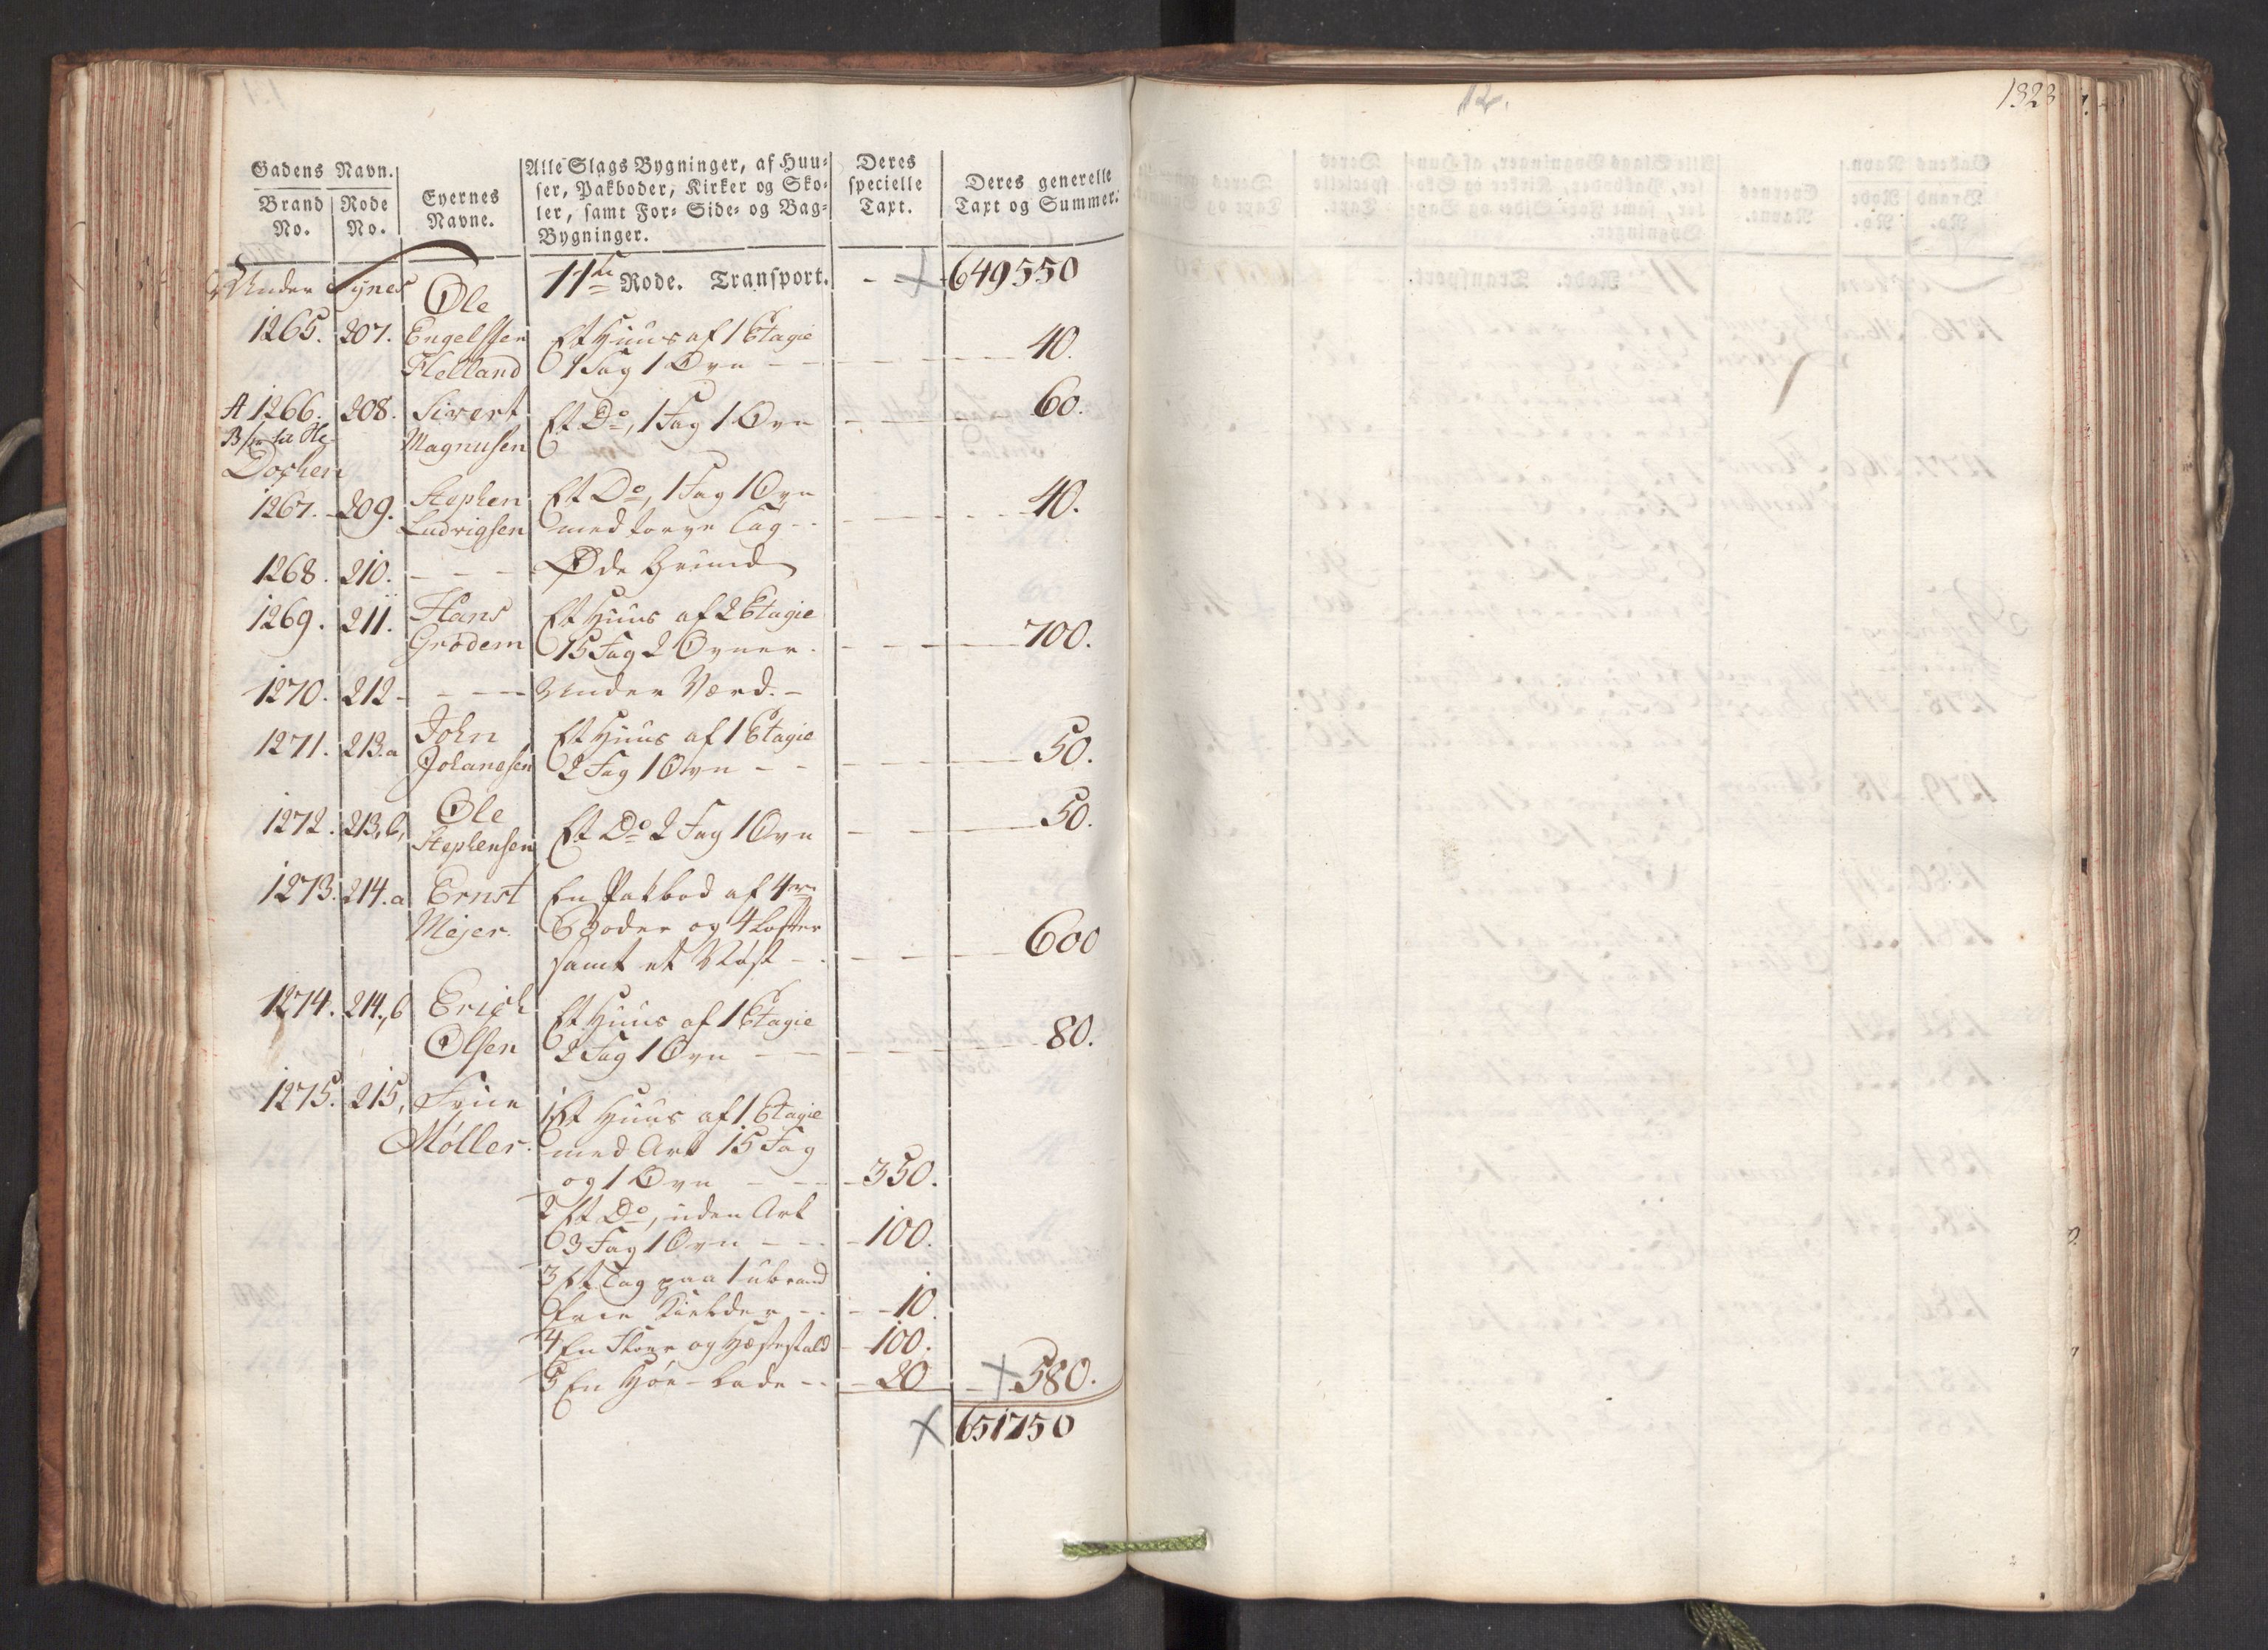 Gadens Navn.
Brand No. Rode No.
Eyernes Navne.
Alle Slags Bygninger, af Huu-
ser, Pakboder, Kirker og Sko-
ler, samt For- Side- og Bag-
Bygninger.
Deres specielle Taxt.
Deres generelle Taxt og Summer.
11te Rode. Transport. - - 649550
Under Synes
1265. 207. Ole Engelssen Helland
Et Huus af 1 Etagie
1 Fag 1 Ovn - - 40.
A 1266. 208. Sivert Magnusen
Et Do, 1 Fag 1 Ovn - 60.
Dochen
1267. 209. Stephen Ludvigsen
Et Do, 1 Fag 1 Ovn
med torve Tag - - 40.
1268. 210. - - - Øde Grund
1269. 211. Hans Grødem
Et Huus af 2 Etagie
15 Fag 2 Ovner. - 700.
1270. 212 - - - - Under Værd. -
1271. 213.a John Johanesen
Et Huus af 1 Etagie
2 Fag 1 Ovn - - 50.
1272. 213,b, Ole Stephensen
Et Do 2 Fag 1 Ovn - 50.
1273. 214.a Ernst Mejer.
En Pakbod af 4re
Boder og 4 Lofter
samt et Nøst - 600
1274. 214.,b Erich Olsen
Et Huus af 1 Etagie
2 Fag 1 Ovn - - 80.
1275. 215, Frue Møller.
1 Et Huus af 1 Etagie
med Ark 15 Fag
og 1 Ovn - - 350.
2 Et Do, uden Ark
3 Fag 1 Ovn - - 100.
3 Et Tag paa 1 ubrand
frie Kielder - - 10.
4 En Floer og Hæstestald - 100.
5 En Høe-Lade - - 20 580.
651750
12.
1323